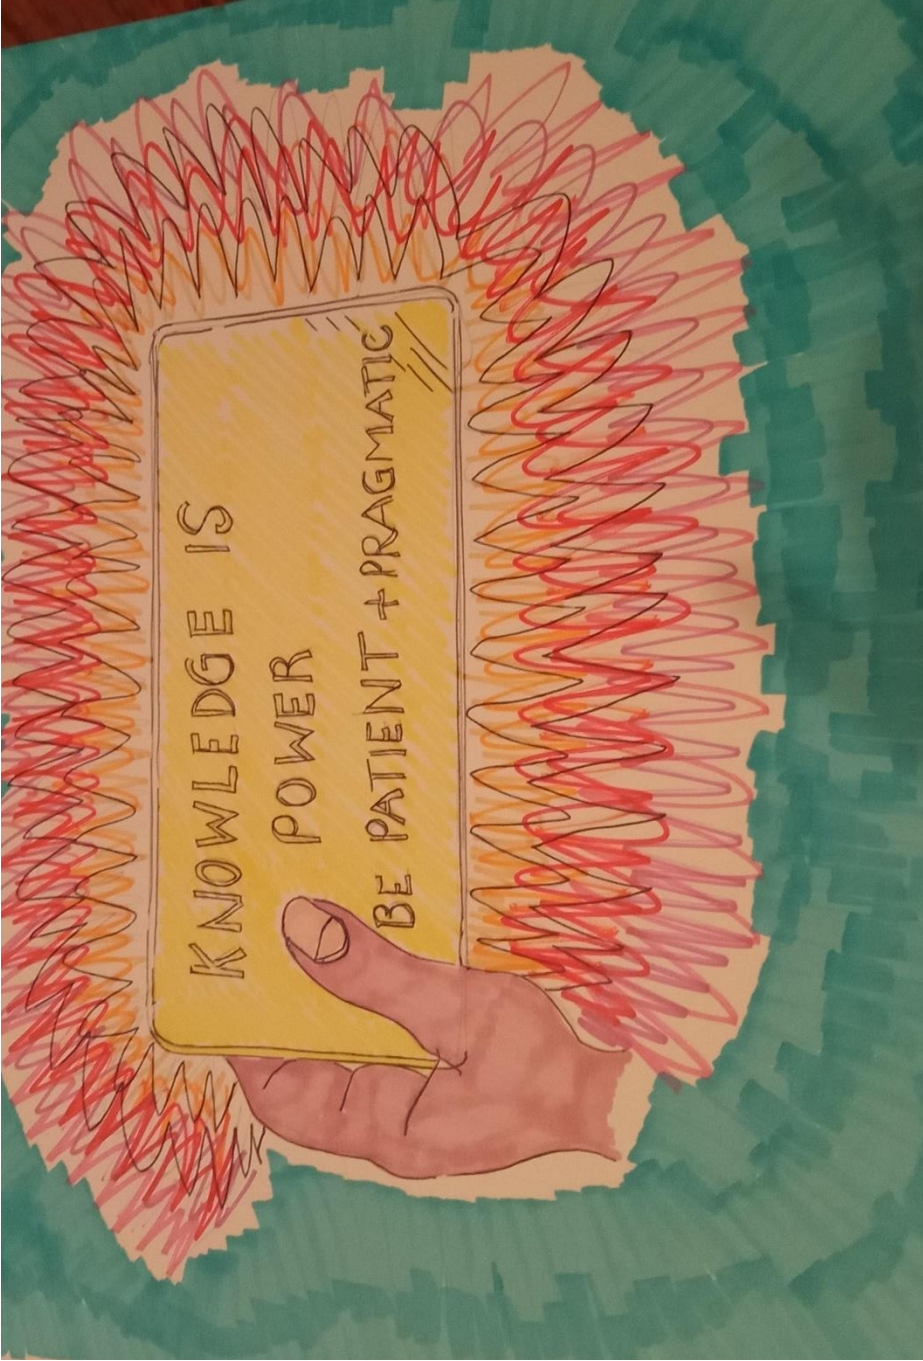 KNOWLEDGE IS
POWER
BE PATIENT + PRAGMATIC